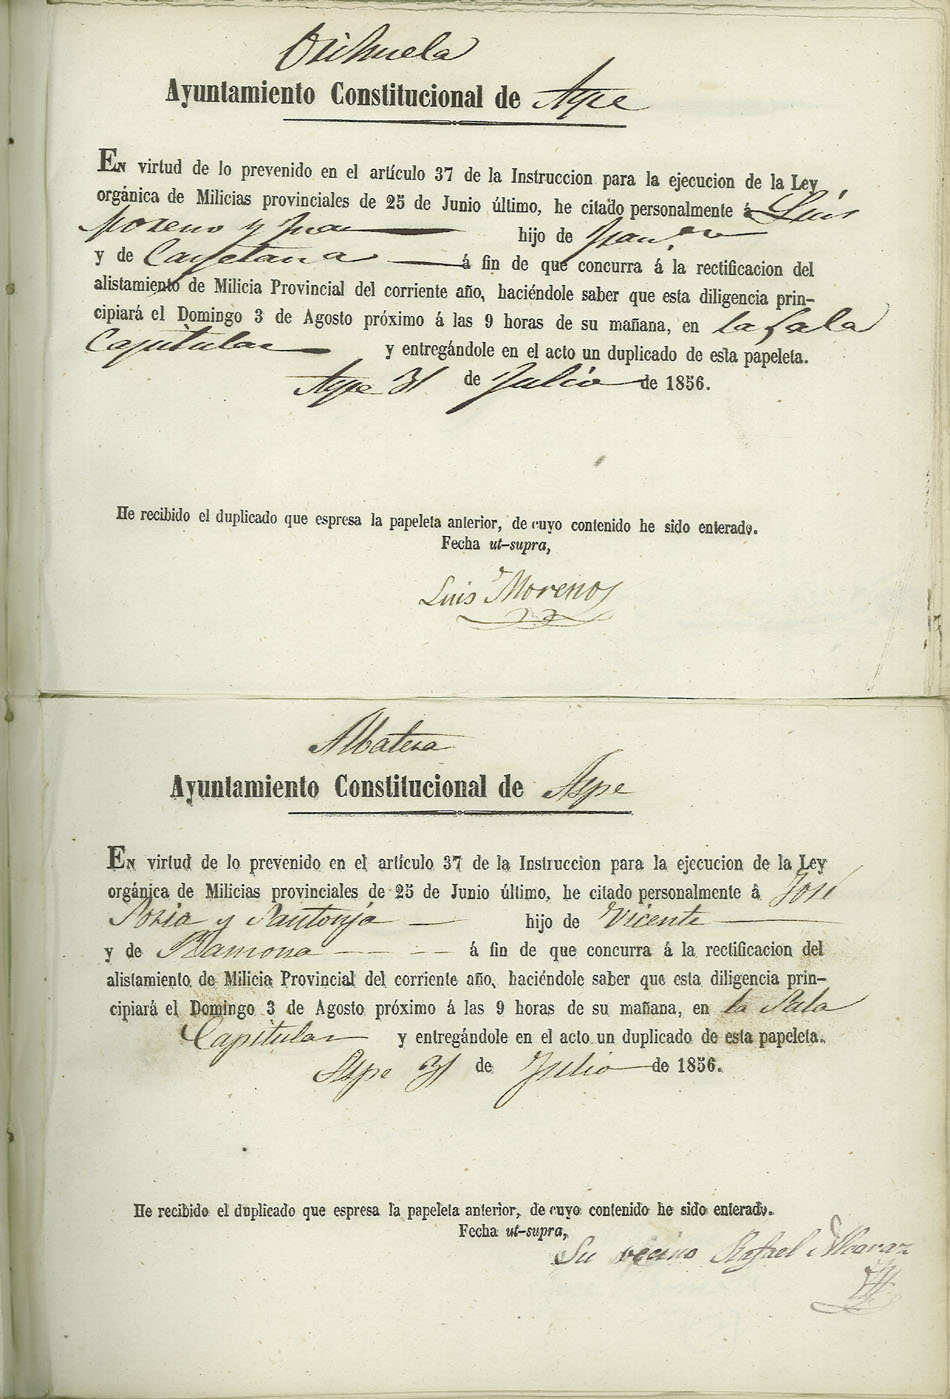 Orihuela
Ayuntamiento Constitucional de Aspe
En virtud de lo prevenido en el artículo 37 de la Instruccion para la ejecucion de la Ley
orgánica de Milicias provinciales de 25 de Junio último, he citado personalmente á Luis
Moreno y hijo de Fran.co
y de Cayetana á fin de que concurra á la rectificacion del
alistamiento de Milicia Provincial del corriente año, haciéndole saber que esta diligencia prin-
cipiará el Domingo 3 de Agosto próximo á las 9 horas de su mañana, en la sala
Capitular y entregándole en el acto un duplicado de esta papeleta.
Aspe 31 de Julio de 1856.
He recibido el duplicado que espresa la papeleta anterior, de cuyo contenido he sido enterado.
Fecha ut-supra,
Luis Moreno
Albatera
Ayuntamiento Constitucional de Aspe
En virtud de lo prevenido en el artículo 37 de la Instruccion para la ejecucion de la Ley
orgánica de Milicias provinciales de 25 de Junio último, he citado personalmente á José
Soria y Santonja hijo de Vicente
y de Ramona á fin de que concurra á la rectificacion del
alistamiento de Milicia Provincial del corriente año, haciéndole saber que esta diligencia prin-
cipiará el Domingo 3 de Agosto próximo á las 9 horas de su mañana, en la Sala
Capitular y entregándole en el acto un duplicado de esta papeleta.
Aspe 31 de Julio de 1856.
He recibido el duplicado que espresa la papeleta anterior, de cuyo contenido he sido enterado.
Fecha ut-supra,
Su vecino Rafael Alcaraz